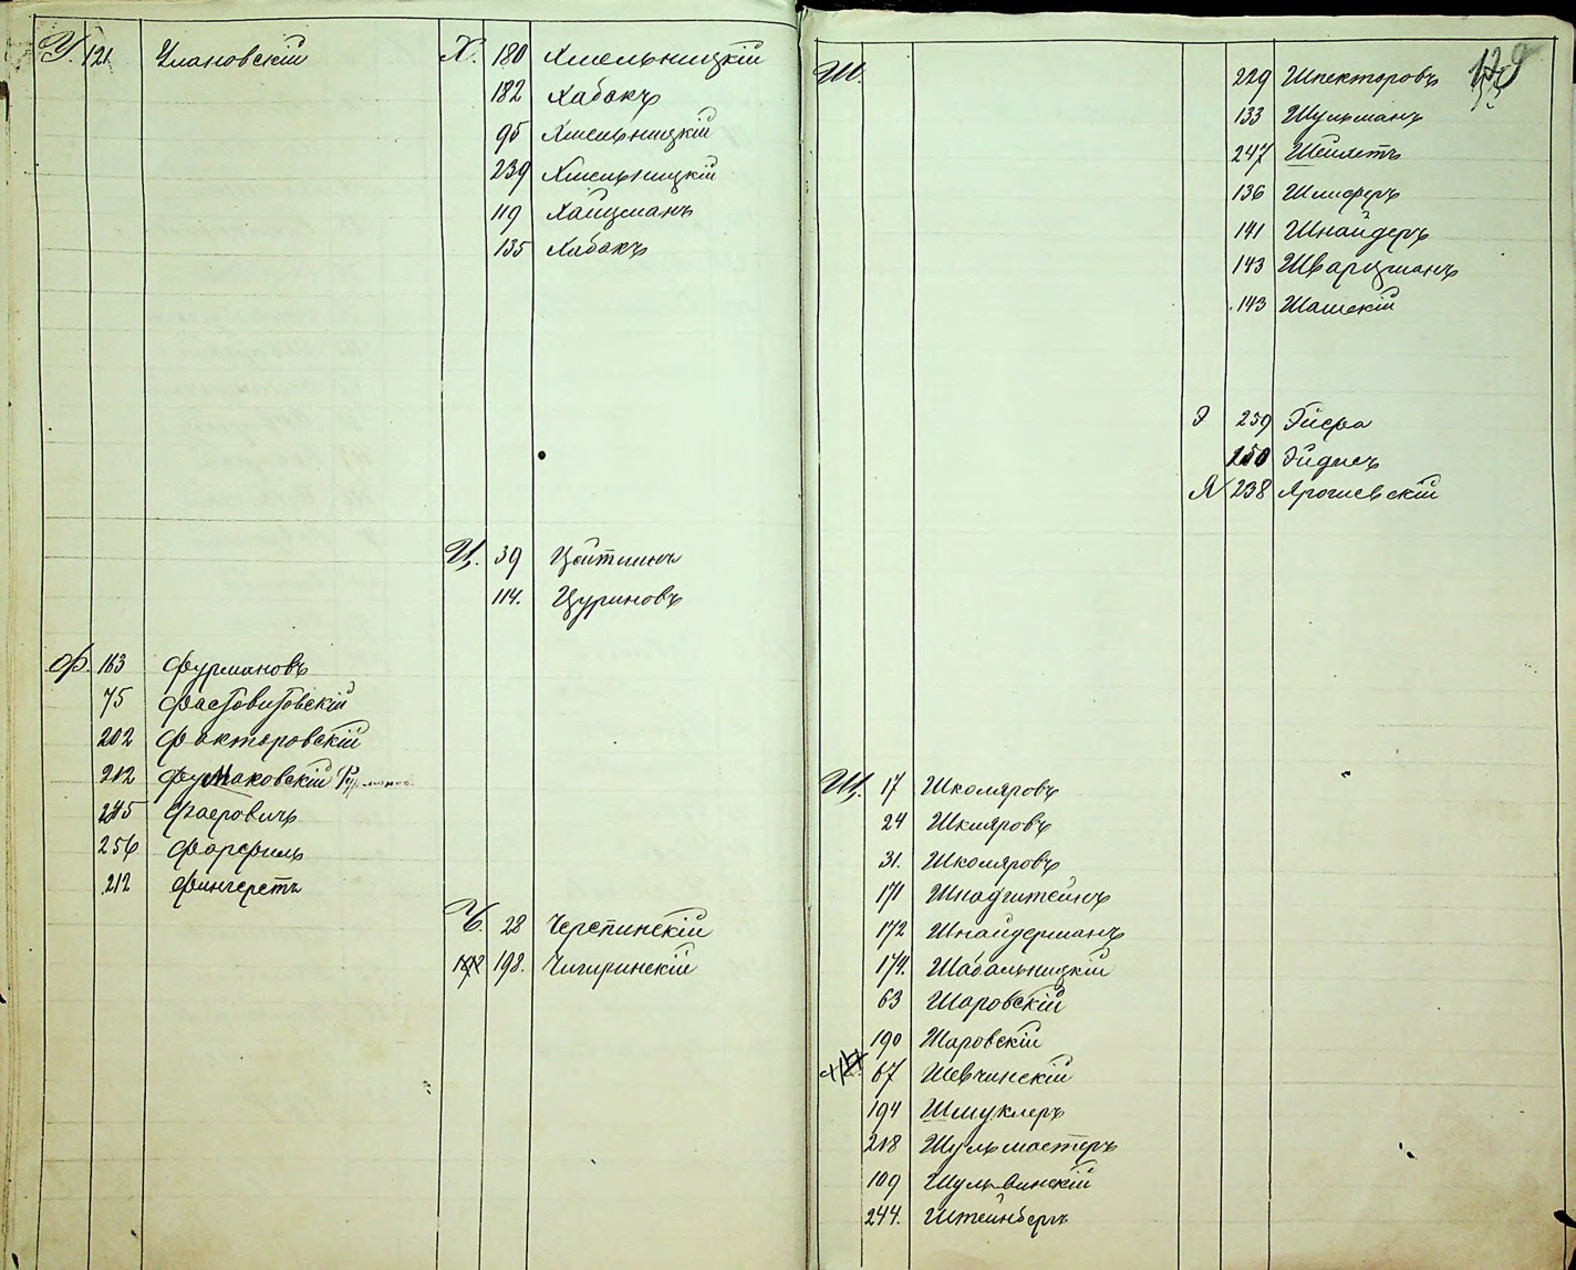 У. 121 Улановскій
Ф. 163 Фурмановъ
75 Фастовитовскій
202 Факторовскій
212 Фумаковскій
245 Фаеровичъ
256 Фарфиль
212 Фингеретъ
Х. 180 Хмельницкій
182 Хабакъ
95 Хмельницкій
239 Хмельницкій
119 Хайцманъ
135 Хабакъ
Ц. 39 Цейтлинъ
114. Цуриновъ
Ч. 28 Черепинскій
198. Чигиринскій
Ш.
229 Шпекторовъ
133 Шульманъ
247 Шейлетъ
136 Шлиферъ
141 Шнайдеръ
143 Шварцманъ
143 Шашскій
Э 259 Эйсра
250 Эйдисъ
Я 238 Ярошевскій
Щ. 17 Школяровъ
24 Шкляровъ
31. Школяровъ
171
172 Шнайдерманъ
174. Шабальницкій
63 Шаровскій
190 Шаровскій
67 Шевчинскій
194 Шмуклеръ
218 Шульмастеръ
109 Шульвинскій
244. Штейнбергъ